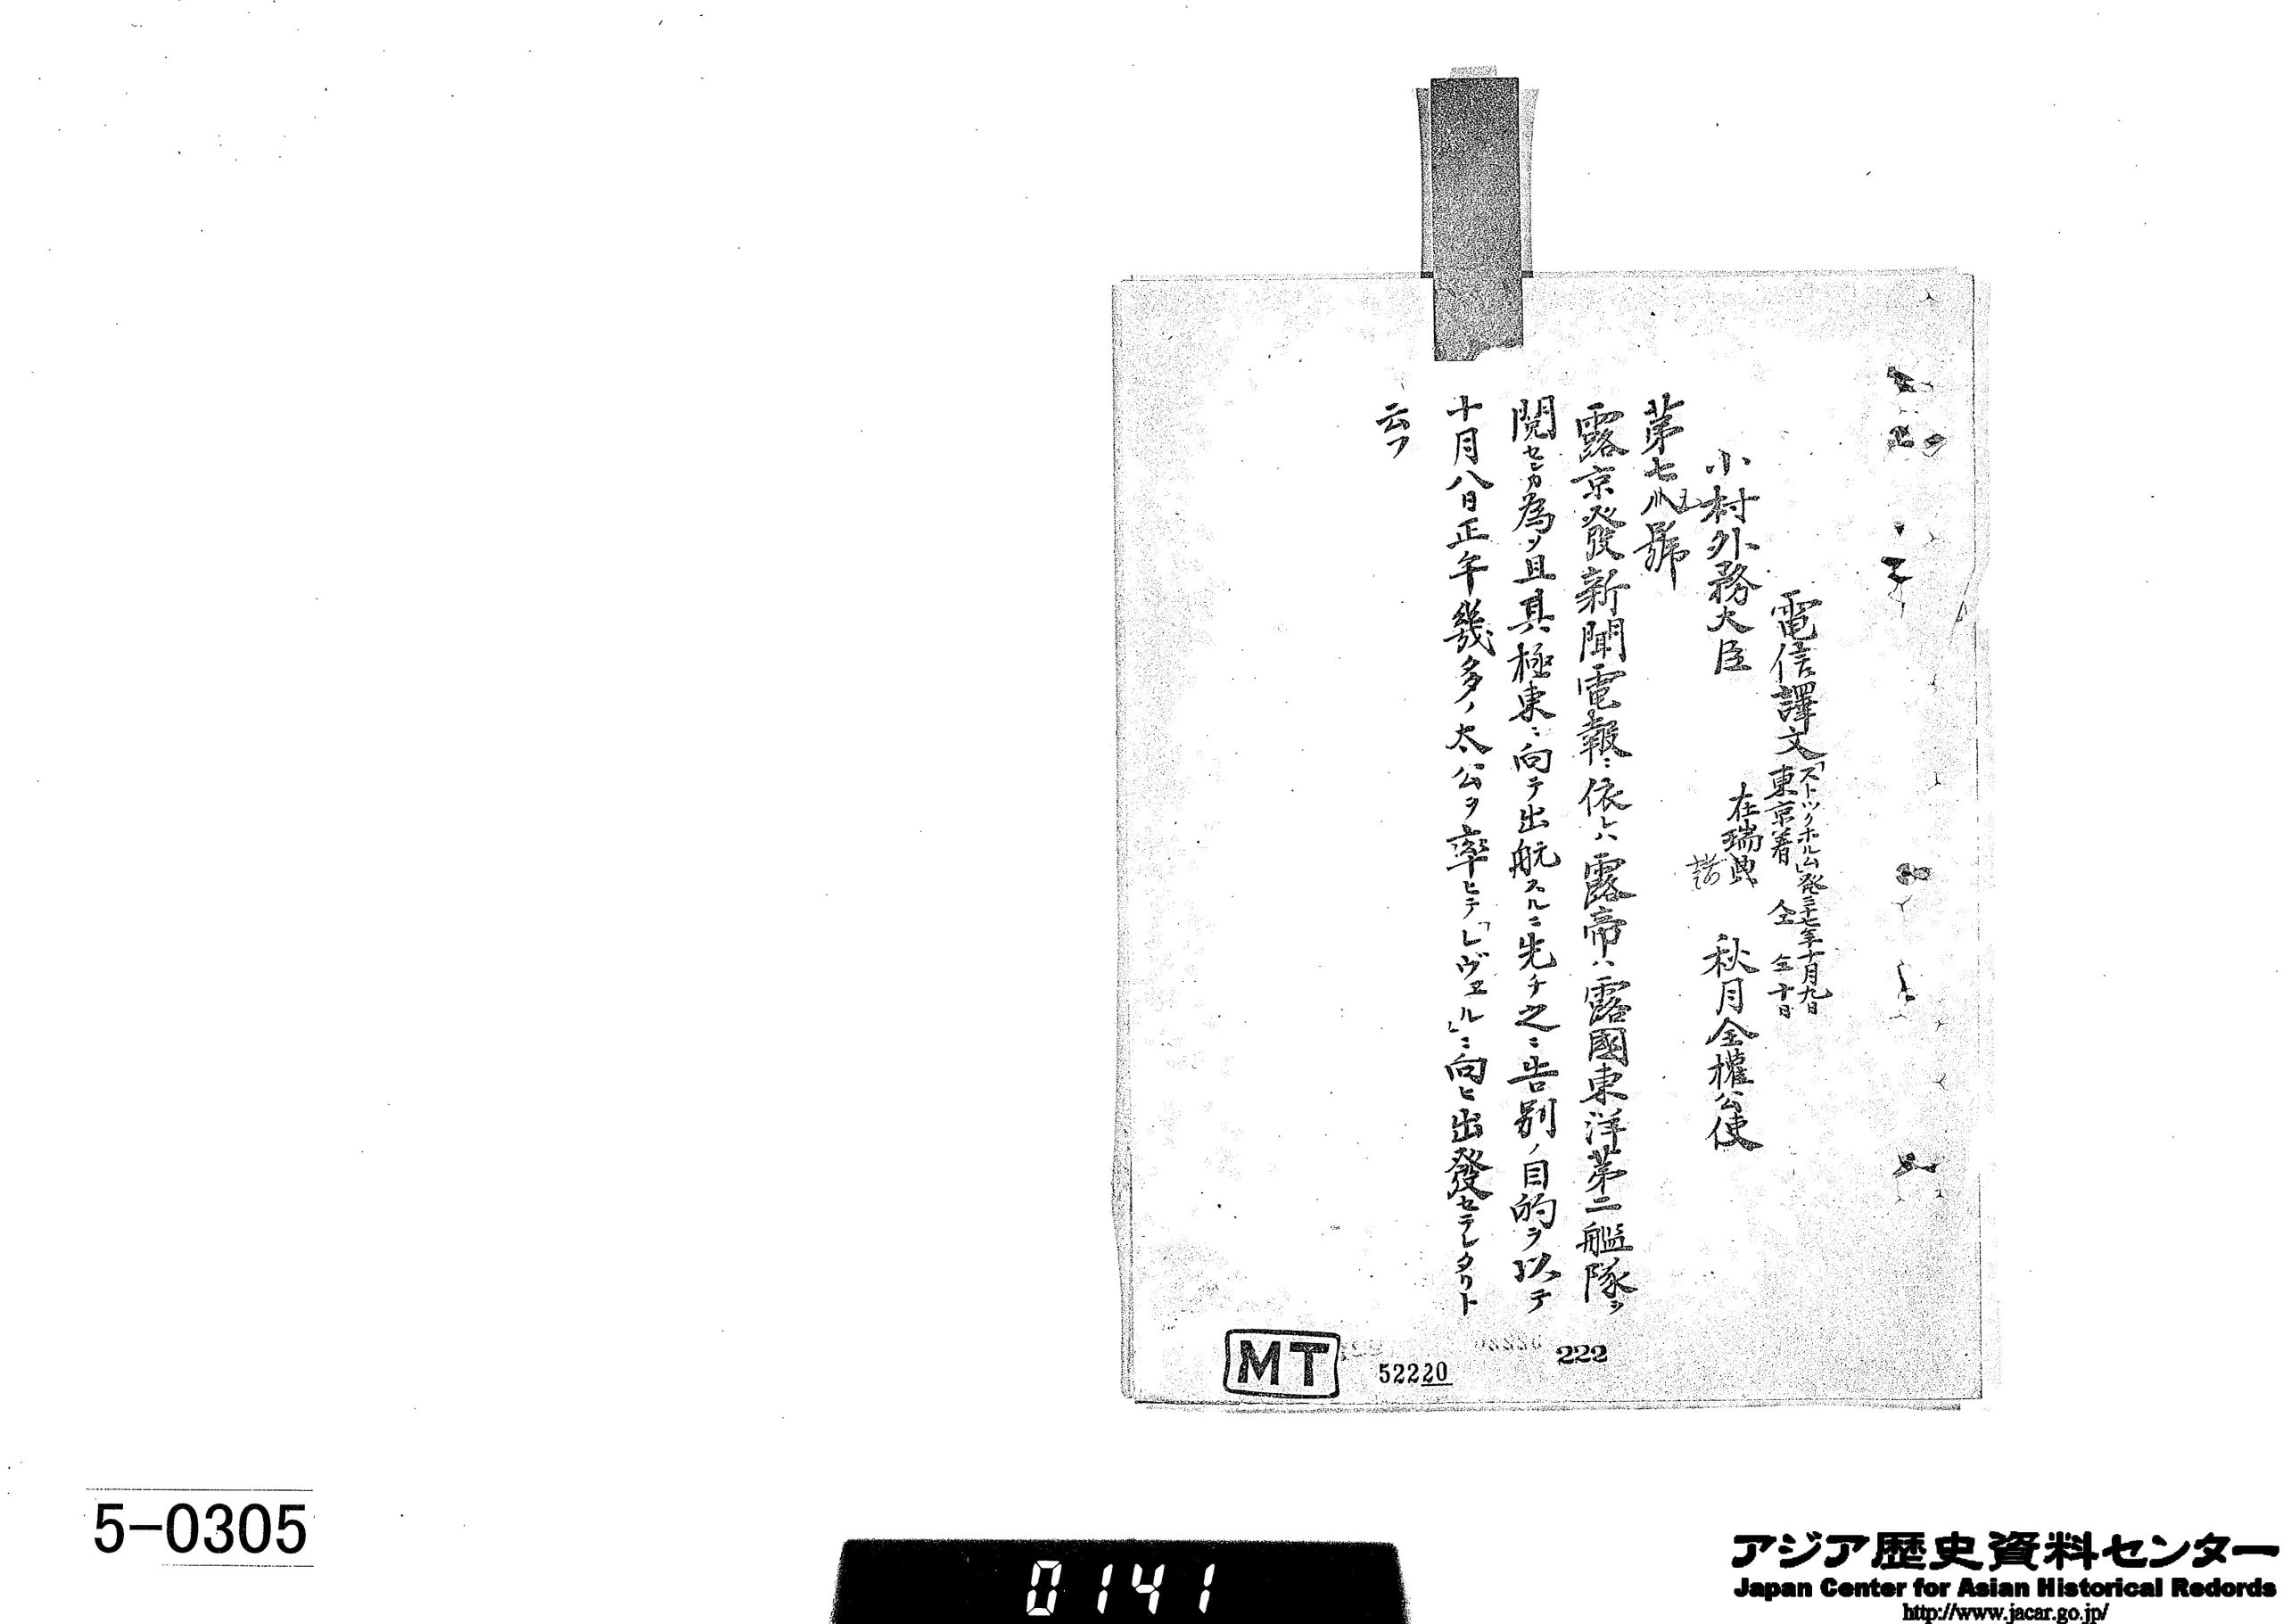 電信譯文
「ストックホルム」発三十七年十月九日
東京着 仝 仝十日
小村外務大臣
在瑞典 秋月全權公使
第七五號
露京發新聞電報ニ依レハ露帝ハ露國東洋第二艦隊ヲ
閲センカ為メ且其極東ニ向テ出航スルニ先チ之ニ告別ノ目的ヲ以テ
十月八日正午幾多ノ太公ヲ率ヒテ「レヴェル」ニ向ヒ出發セラレタリト
云フ
MT
52220
222
5-0305
0141
アジア歴史資料センター
Japan Center for Asian Historical Redords
http://www.jacar.go.jp/